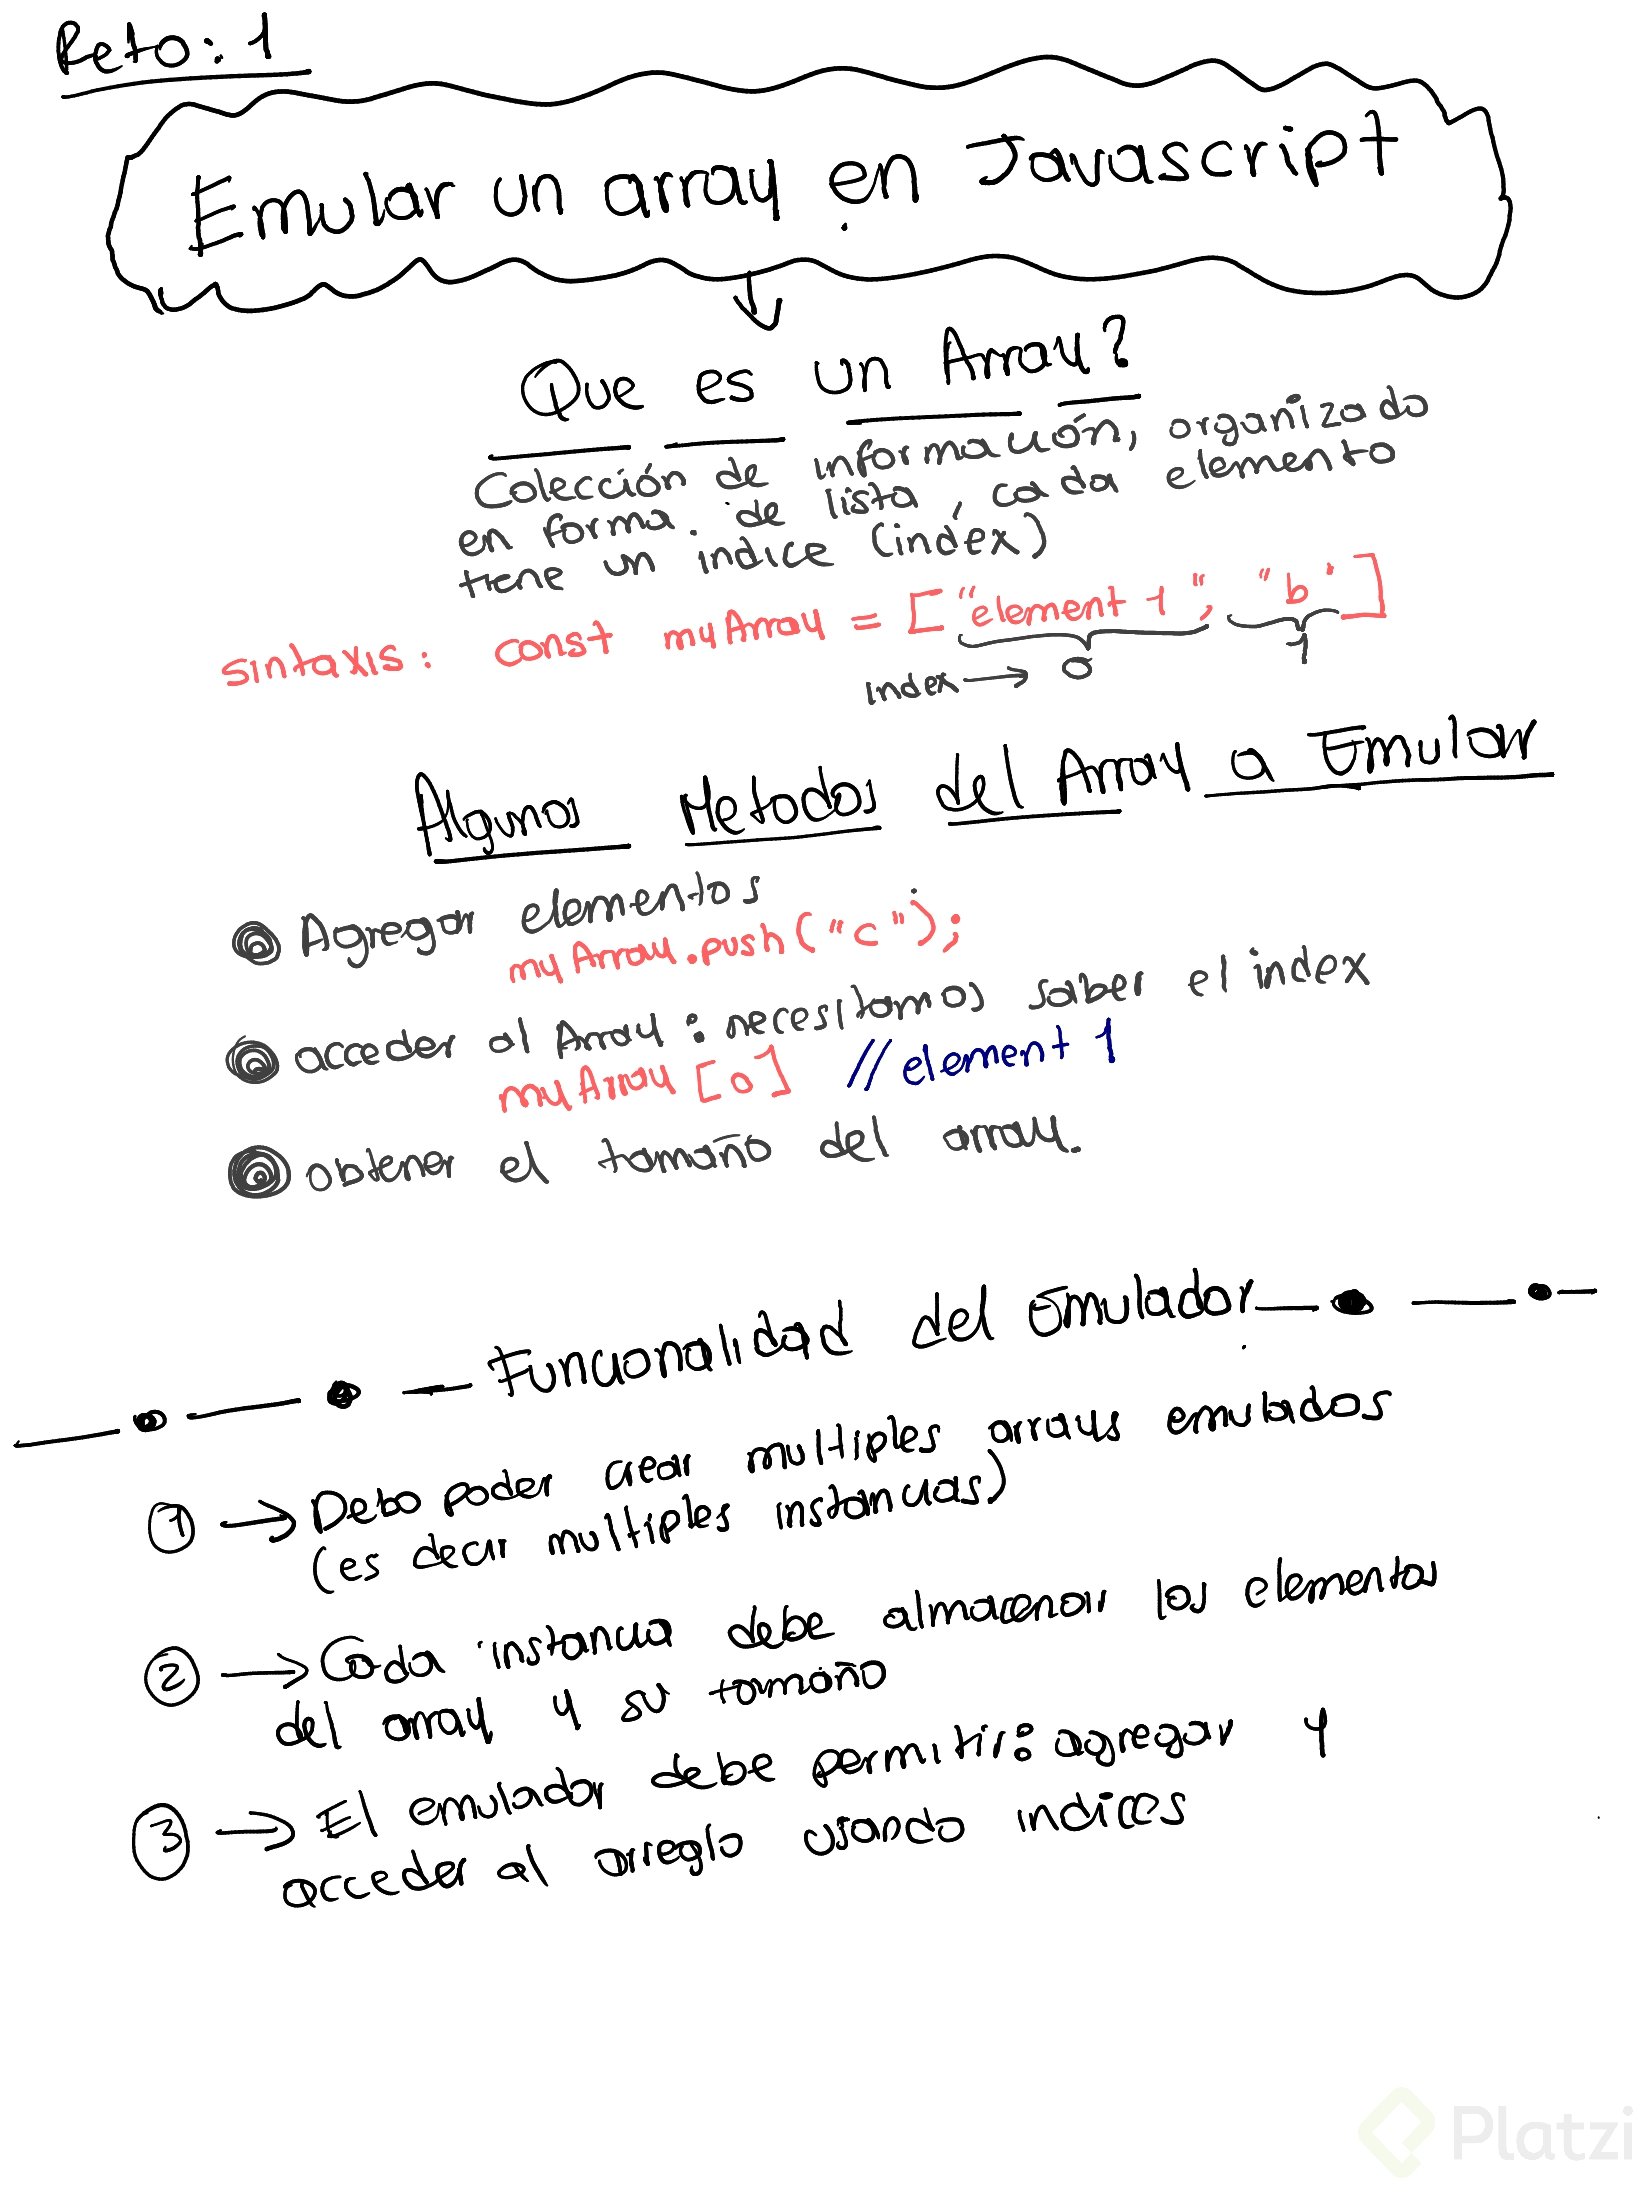 Reto: 1
Emular un array en Javascript
Que es un Array?
Colección de información, organizado
en forma. de lista, cada elemento
tiene un indice (index)
sintaxis: const myArray = ["element 1", "b"]
index → 0 1
Algunos Metodos del Array a Emular
Agregar elementos
myArray.push("c");
acceder al Array: necesitamos saber el index
myArray[0] //element 1
obtener el tamaño del array.
Funcionalidad del Emulador
1 → Debo poder crear multiples arrays emulados
(es decir multiples instancias)
2 → Cada instancia debe almacenar los elementos
del array y su tamaño
3 → El emulador debe permitir: agregar y
acceder al arreglo usando indices
Platzi